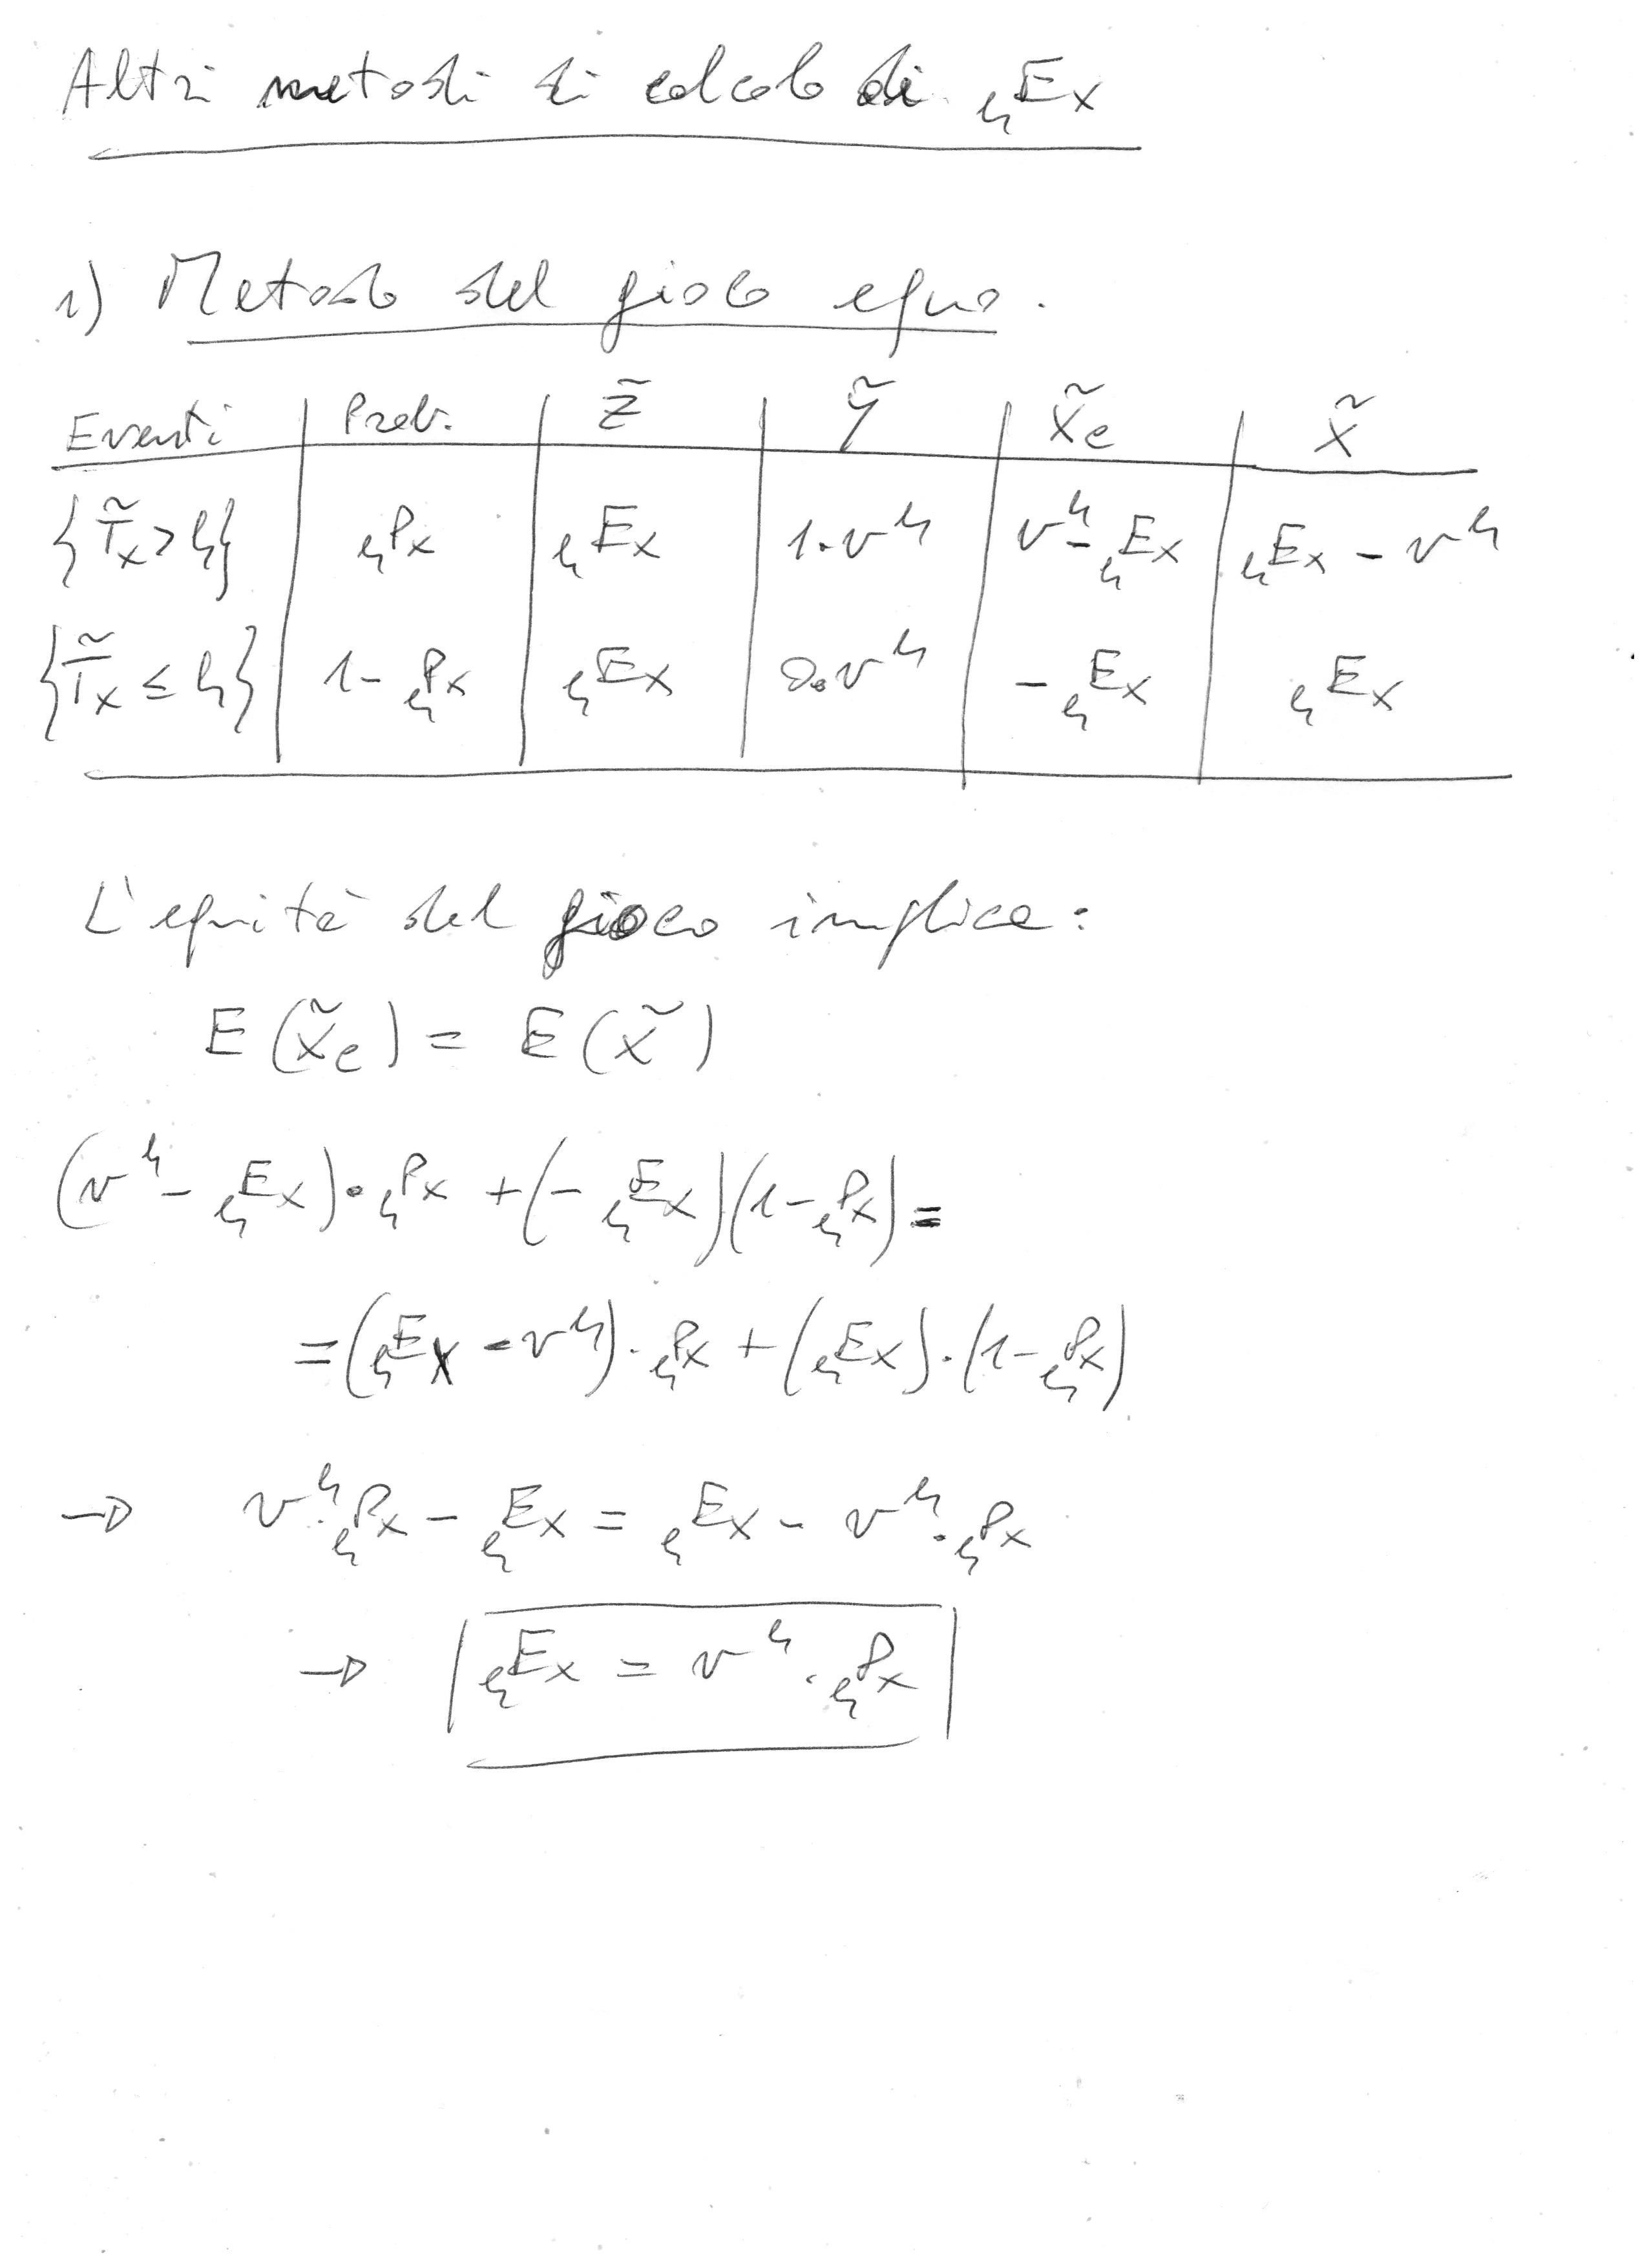 Altri metodi di calcolo di ₕEₓ
1) Metodo del gioco equo.
Eventi | Prob. | Z̃ | Ỹ | X̃e | X̃
{T̃ₓ > h} | ₕPₓ | ₕEₓ | 1·vʰ | vʰ - ₕEₓ | ₕEₓ - vʰ
{T̃ₓ ≤ h} | 1 - ₕPₓ | ₕEₓ | 0·vʰ | - ₕEₓ | ₕEₓ
L'equità del gioco implica:
E(X̃e) = E(X̃)
(vʰ - ₕEₓ)·ₕPₓ + (- ₕEₓ)(1 - ₕPₓ) =
= (ₕEₓ - vʰ)·ₕPₓ + (ₕEₓ)·(1 - ₕPₓ)
→ vʰ·ₕPₓ - ₕEₓ = ₕEₓ - vʰ·ₕPₓ
→ ₕEₓ = vʰ·ₕPₓ